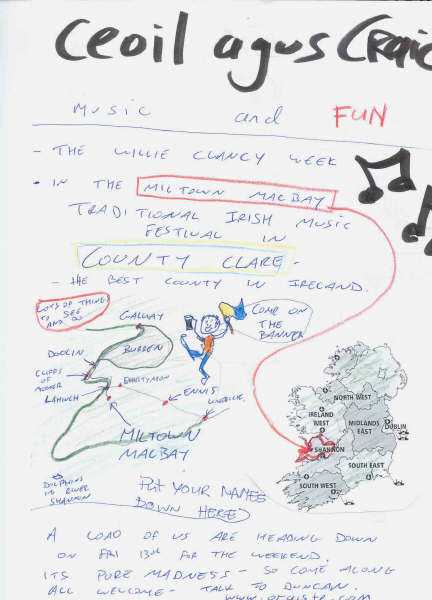 Ceoil agus Craic
MUSIC and FUN
- THE WILLIE CLANCY WEEK
- IN THE MILTOWN MACBAY
TRADITIONAL IRISH MUSIC
FESTIVAL IN
COUNTY CLARE -
- THE BEST COUNTY IN IRELAND.
LOTS OF THINGS
TO SEE
AND DO
GALWAY
BURREN
DOOLIN
CLIFFS
OF
MOHER
LAHINCH
ENNISTYMON
ENNIS
LIMERICK
MILTOWN
MACBAY
COME ON
THE
BANNER
NORTH WEST
IRELAND
WEST
MIDLANDS
EAST
DUBLIN
SHANNON
SOUTH EAST
SOUTH WEST
DOLPHINS
IN RIVER
SHANNON
PUT YOUR NAMES
DOWN HERE
A LOAD OF US ARE HEADING DOWN
ON FRI 13th FOR THE WEEKEND.
ITS PURE MADNESS - SO COME ALONG
ALL WELCOME - TALK TO DUNCAN.